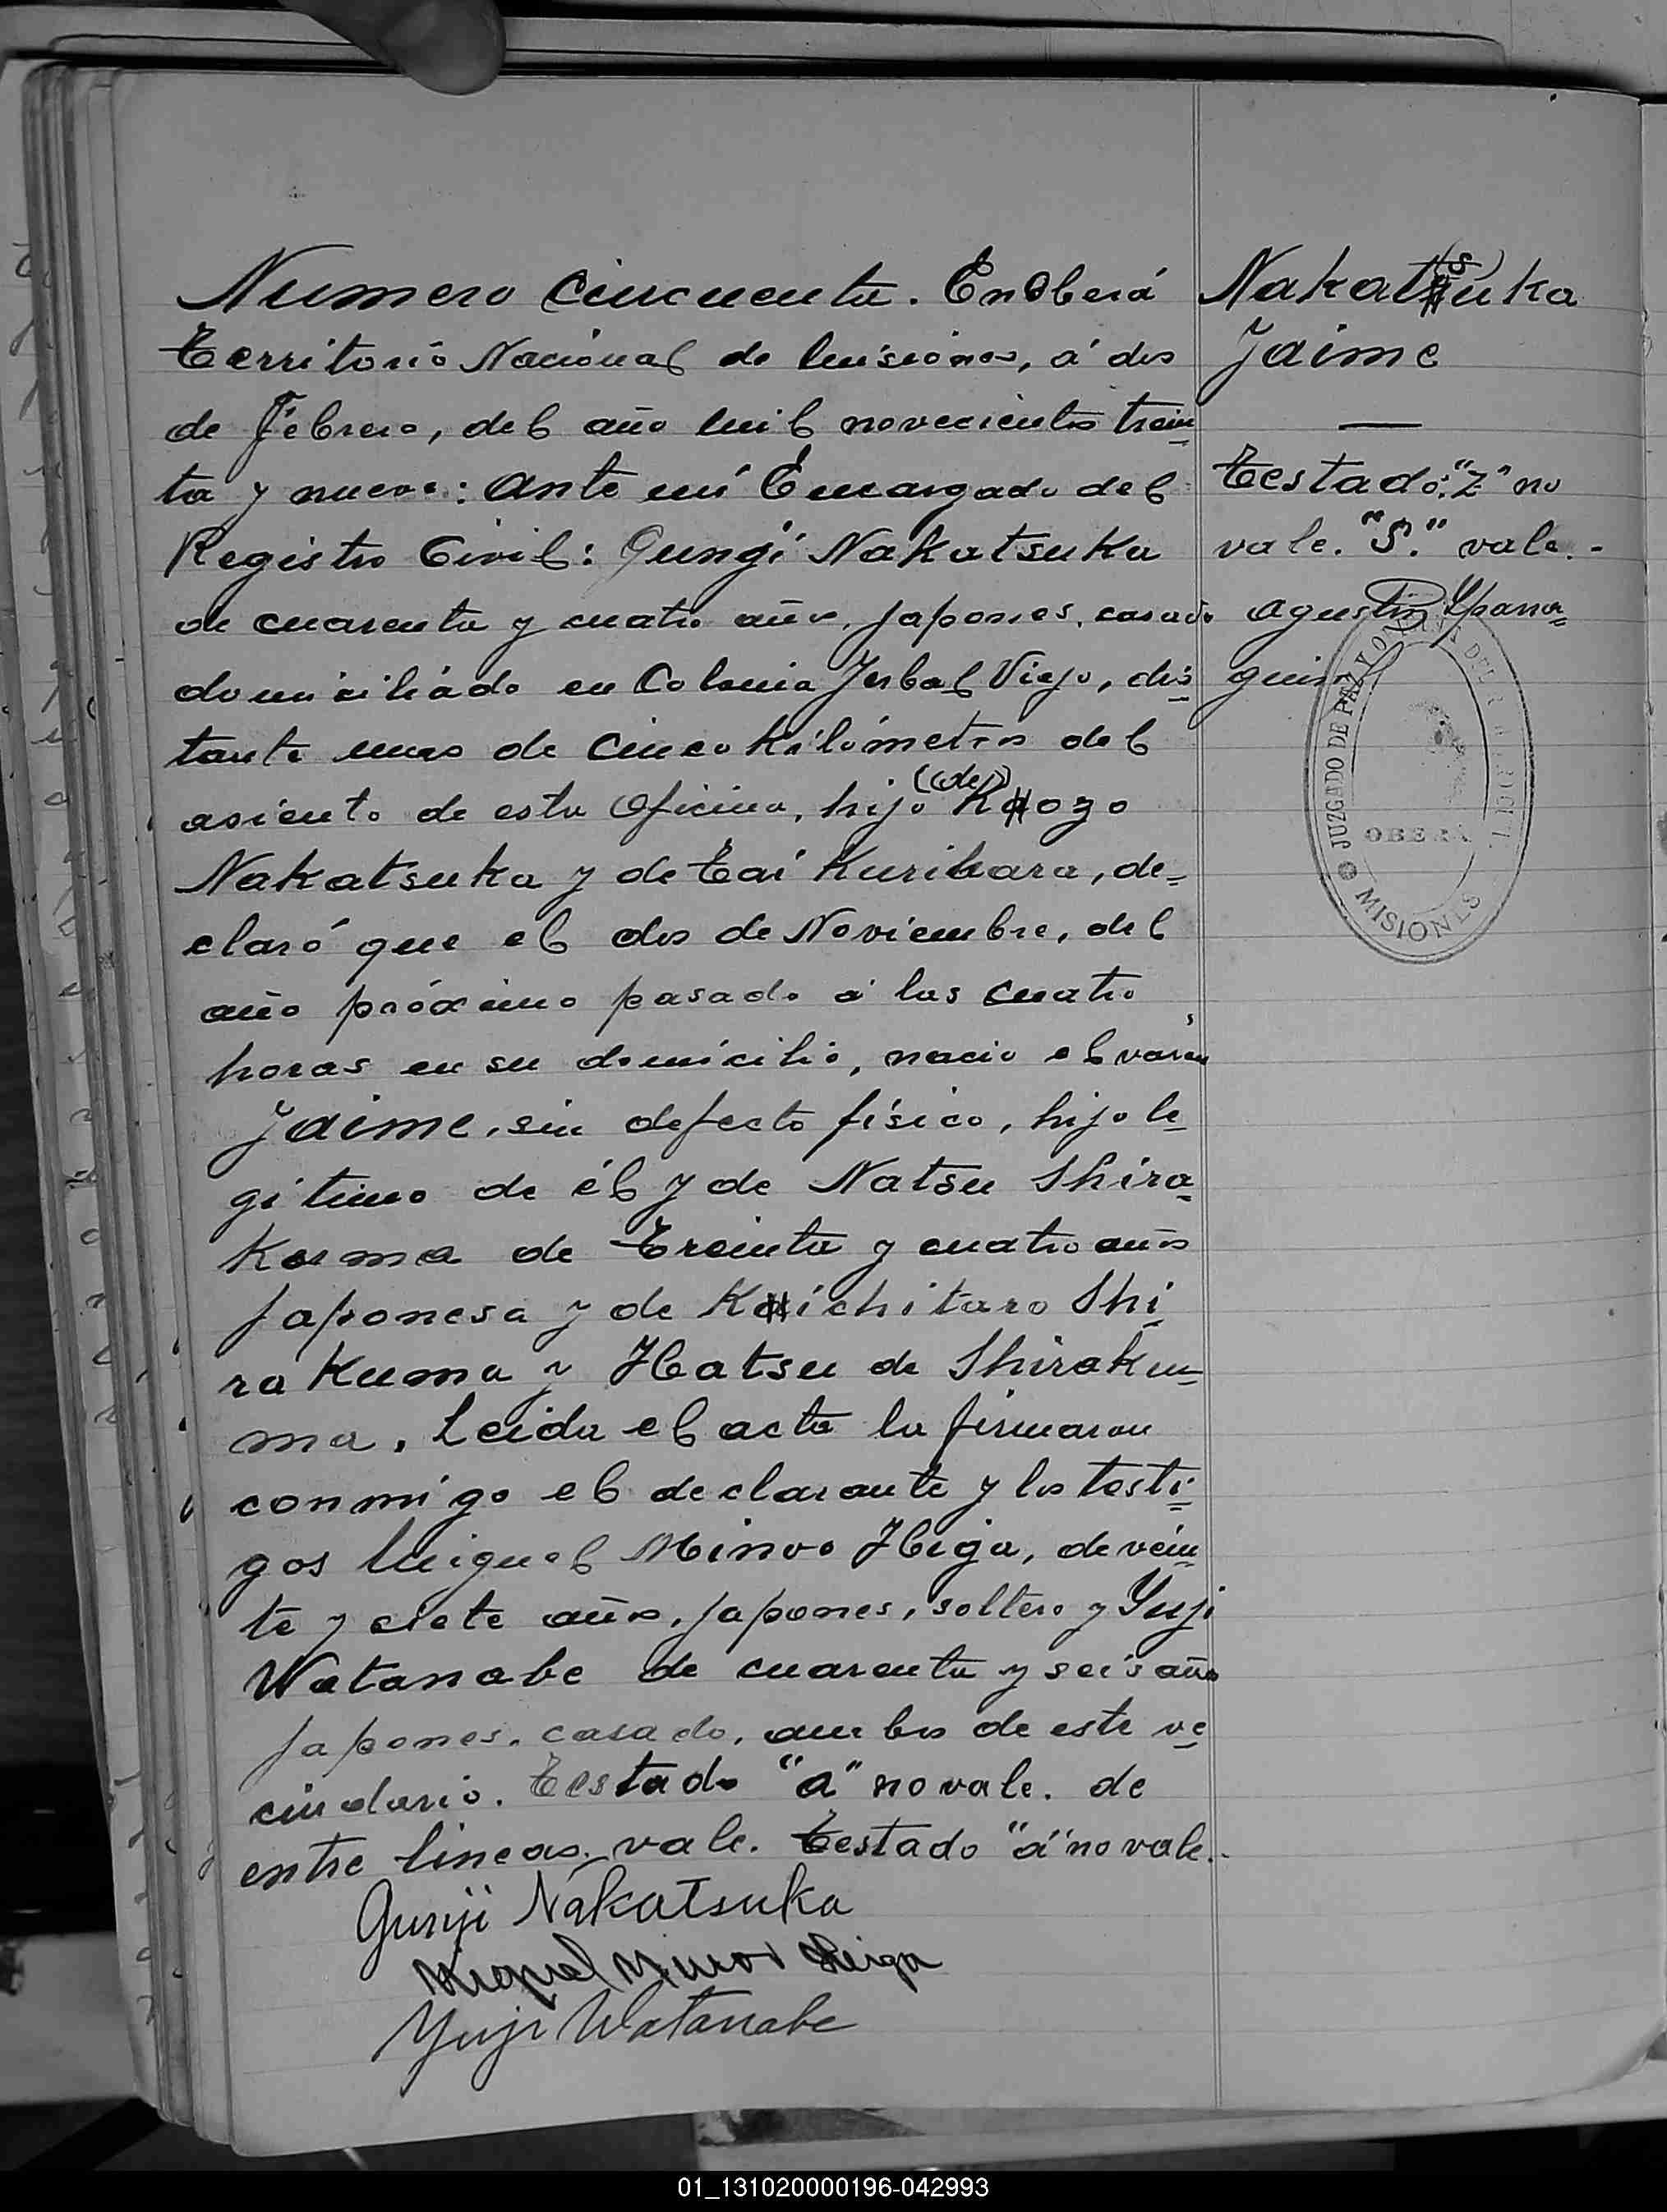 Numero cincuenta. En Oberá
Territorio Nacional de Misiones, á dos
de Febrero, del año mil novecientos trein
ta y nueve: Ante mí Encargado del
Registro Civil: Gungi Nakatsuka
de cuarenta y cuatro años, japones, casado
domiciliado en Colonia Yerbal Viejo, dis
tante unos de cinco kilómetros del
asiento de esta Oficina, hijo (de) Kaozo
Nakatsuka y de Tai Kurihara, de-
claró que el dos de Noviembre, del
año próximo pasado á las cuatro
horas en su domicilio, nació el varon
Jaime, sin defecto físico, hijo le
gítimo de él y de Natsu Shira
kuma de treinta y cuatro años
japonesa y de Kaichitaro Shi
rakuma y Hatsu de Shiraku-
ma. Leida el acta la firmaron
conmigo el declarante y los testi
gos Miguel Minoo Higa, de vein
te y siete años, japones, soltero y Yuji
Watanabe de cuarenta y seis años
japones, casado, ambos de este ve
cindario. Testado "a" no vale. de
entre lineas, vale. Testado "a" no vale.-
Gunji Nakatsuka
Miguel Minoo Heiga
Yuji Watanabe
Nakat(s)uka
Jaime
Testado: "Z" no
vale. "S." vale.-
Agustin Ypara
JUZGADO DE PAZ Y
OBERA
MISIONES
01_131020000196-042993